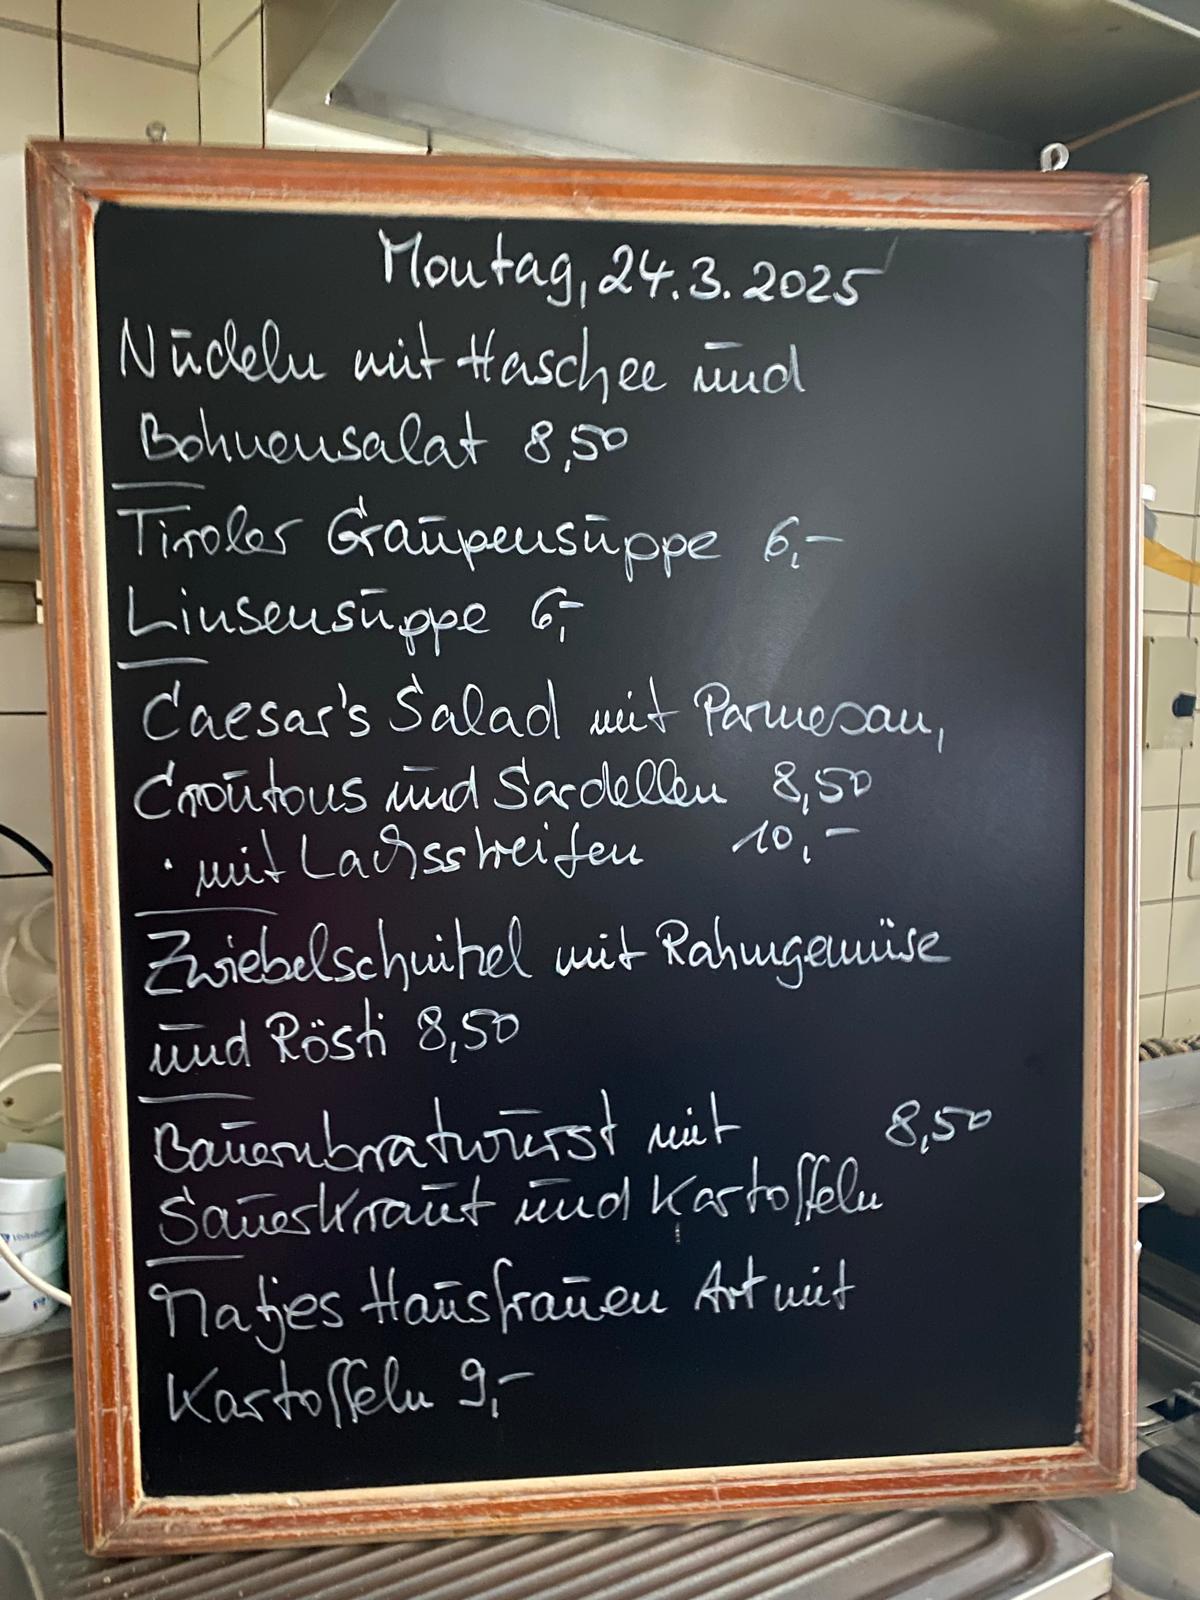 Montag, 24.3.2025
Nudeln mit Haschee und
Bohnensalat 8,50
Tiroler Graupensuppe 6,-
Linsensuppe 6,-
Caesar's Salad mit Parmesan,
Croutons und Sardellen 8,50
· mit Lachsstreifen 10,-
Zwiebelschnitzel mit Rahmgemüse
und Rösti 8,50
Bauernbratwurst mit 8,50
Sauerkraut und Kartoffeln
Matjes Hausfrauen Art mit
Kartoffeln 9,-